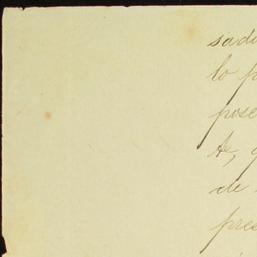 sadi
lo p
pose
te, q
de
pres